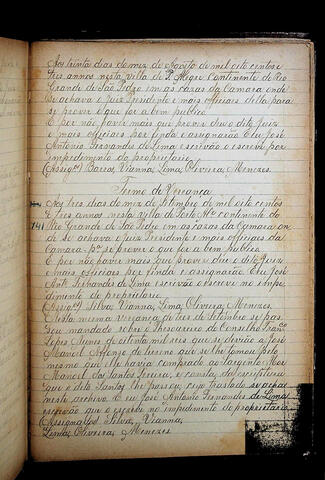 Aos trinta dias do mez de Agosto de mil oito centos e
tres annos nesta villa de P. Alegre Continente do Rio
Grande de São Pedro em as cazas da Camara onde
se achava o Juiz Prezidente e mais officiais della para
se prover o que for a bem publico.
E por não haver mais que prover deu o dito Juiz
e mais officiais por finda e assignarão. E eu José
Antonio Fernandes de Lima escrivão o escrevi por
impedimento do proprietario.
(Assig.os) Barros, Vianna, Lima, Oliveira, Menezes.
Termo de Vereança
Aos tres dias do mez de Setembro de mil oito centos
e tres annos nesta villa de Porto Al.e continente do
141 Rio Grande de São Pedro em as cazas da Camara on
de se achava o Juiz Prezidente e mais officiais da
Camara p.a se prover o que for a bem publico.
E por não haver mais que prover deu o dito Juiz
e mais officiais por finda e assignarão. E eu José
Ant.o Fernandes de Lima escrivão o escrevi no impe
dimento do proprietario.
(Assig.os) Silva, Vianna, Lima, Oliveira, Menezes.
Nesta mesma vereança de tres de Setembro se pas
sou mandado sobre o Thezoureiro do Conselho Franc.co
Lopes Nunes de oitenta mil reis que se derão a José
Manoel Affonso do terreno que se lhe tomou pelo
mesmo que elle havia comprado ao Sargento Mor
Manoel dos Santos e consta da escriptura
que o dito Santos lhe passou, cujo traslado se acha
neste archivo. E eu José Antonio Fernandes de Lima
escrivão que o escrevi no impedimento do proprietario
(Assignados) Silva, Vianna,
Lima, Oliveira, Menezes